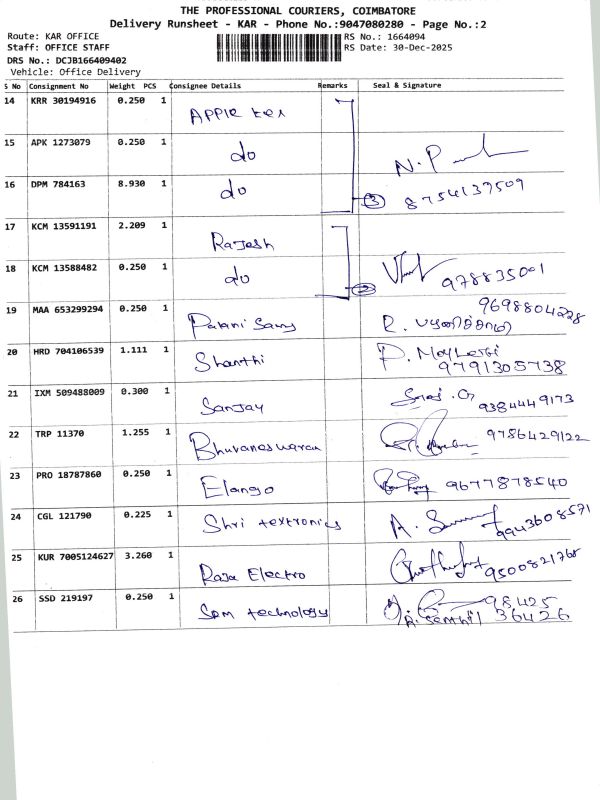 THE PROFESSIONAL COURIERS, COIMBATORE
Delivery Runsheet - KAR - Phone No.:9047080280 - Page No.:2
Route: KAR OFFICE RS No.: 1664094
Staff: OFFICE STAFF RS Date: 30-Dec-2025
DRS No.: DCJB166409402
Vehicle: Office Delivery
S No Consignment No Weight PCS Consignee Details Remarks Seal & Signature
14 KRR 30194916 0.250 1 Apple tex
15 APK 1273079 0.250 1 do N. P
16 DPM 784163 8.930 1 do 3 8754137509
17 KCM 13591191 2.209 1 Rajesh
18 KCM 13588482 0.250 1 do 2 978835001
19 MAA 653299294 0.250 1 Palani Samy 9698804228
R. பழனிச்சாமி
20 HRD 704106539 1.111 1 Shanthi P.
9791305738
21 IXM 509488009 0.300 1 Sanjay 9384449173
22 TRP 11370 1.255 1 Bhuvaneswaran 9786429122
23 PRO 18787860 0.250 1 Elango 9677878540
24 CGL 121790 0.225 1 Shri textronics A. 9943608571
25 KUR 7005124627 3.260 1 Raja Electro 9500821765
26 SSD 219197 0.250 1 Spm technology 98425
A. Senthil 36426